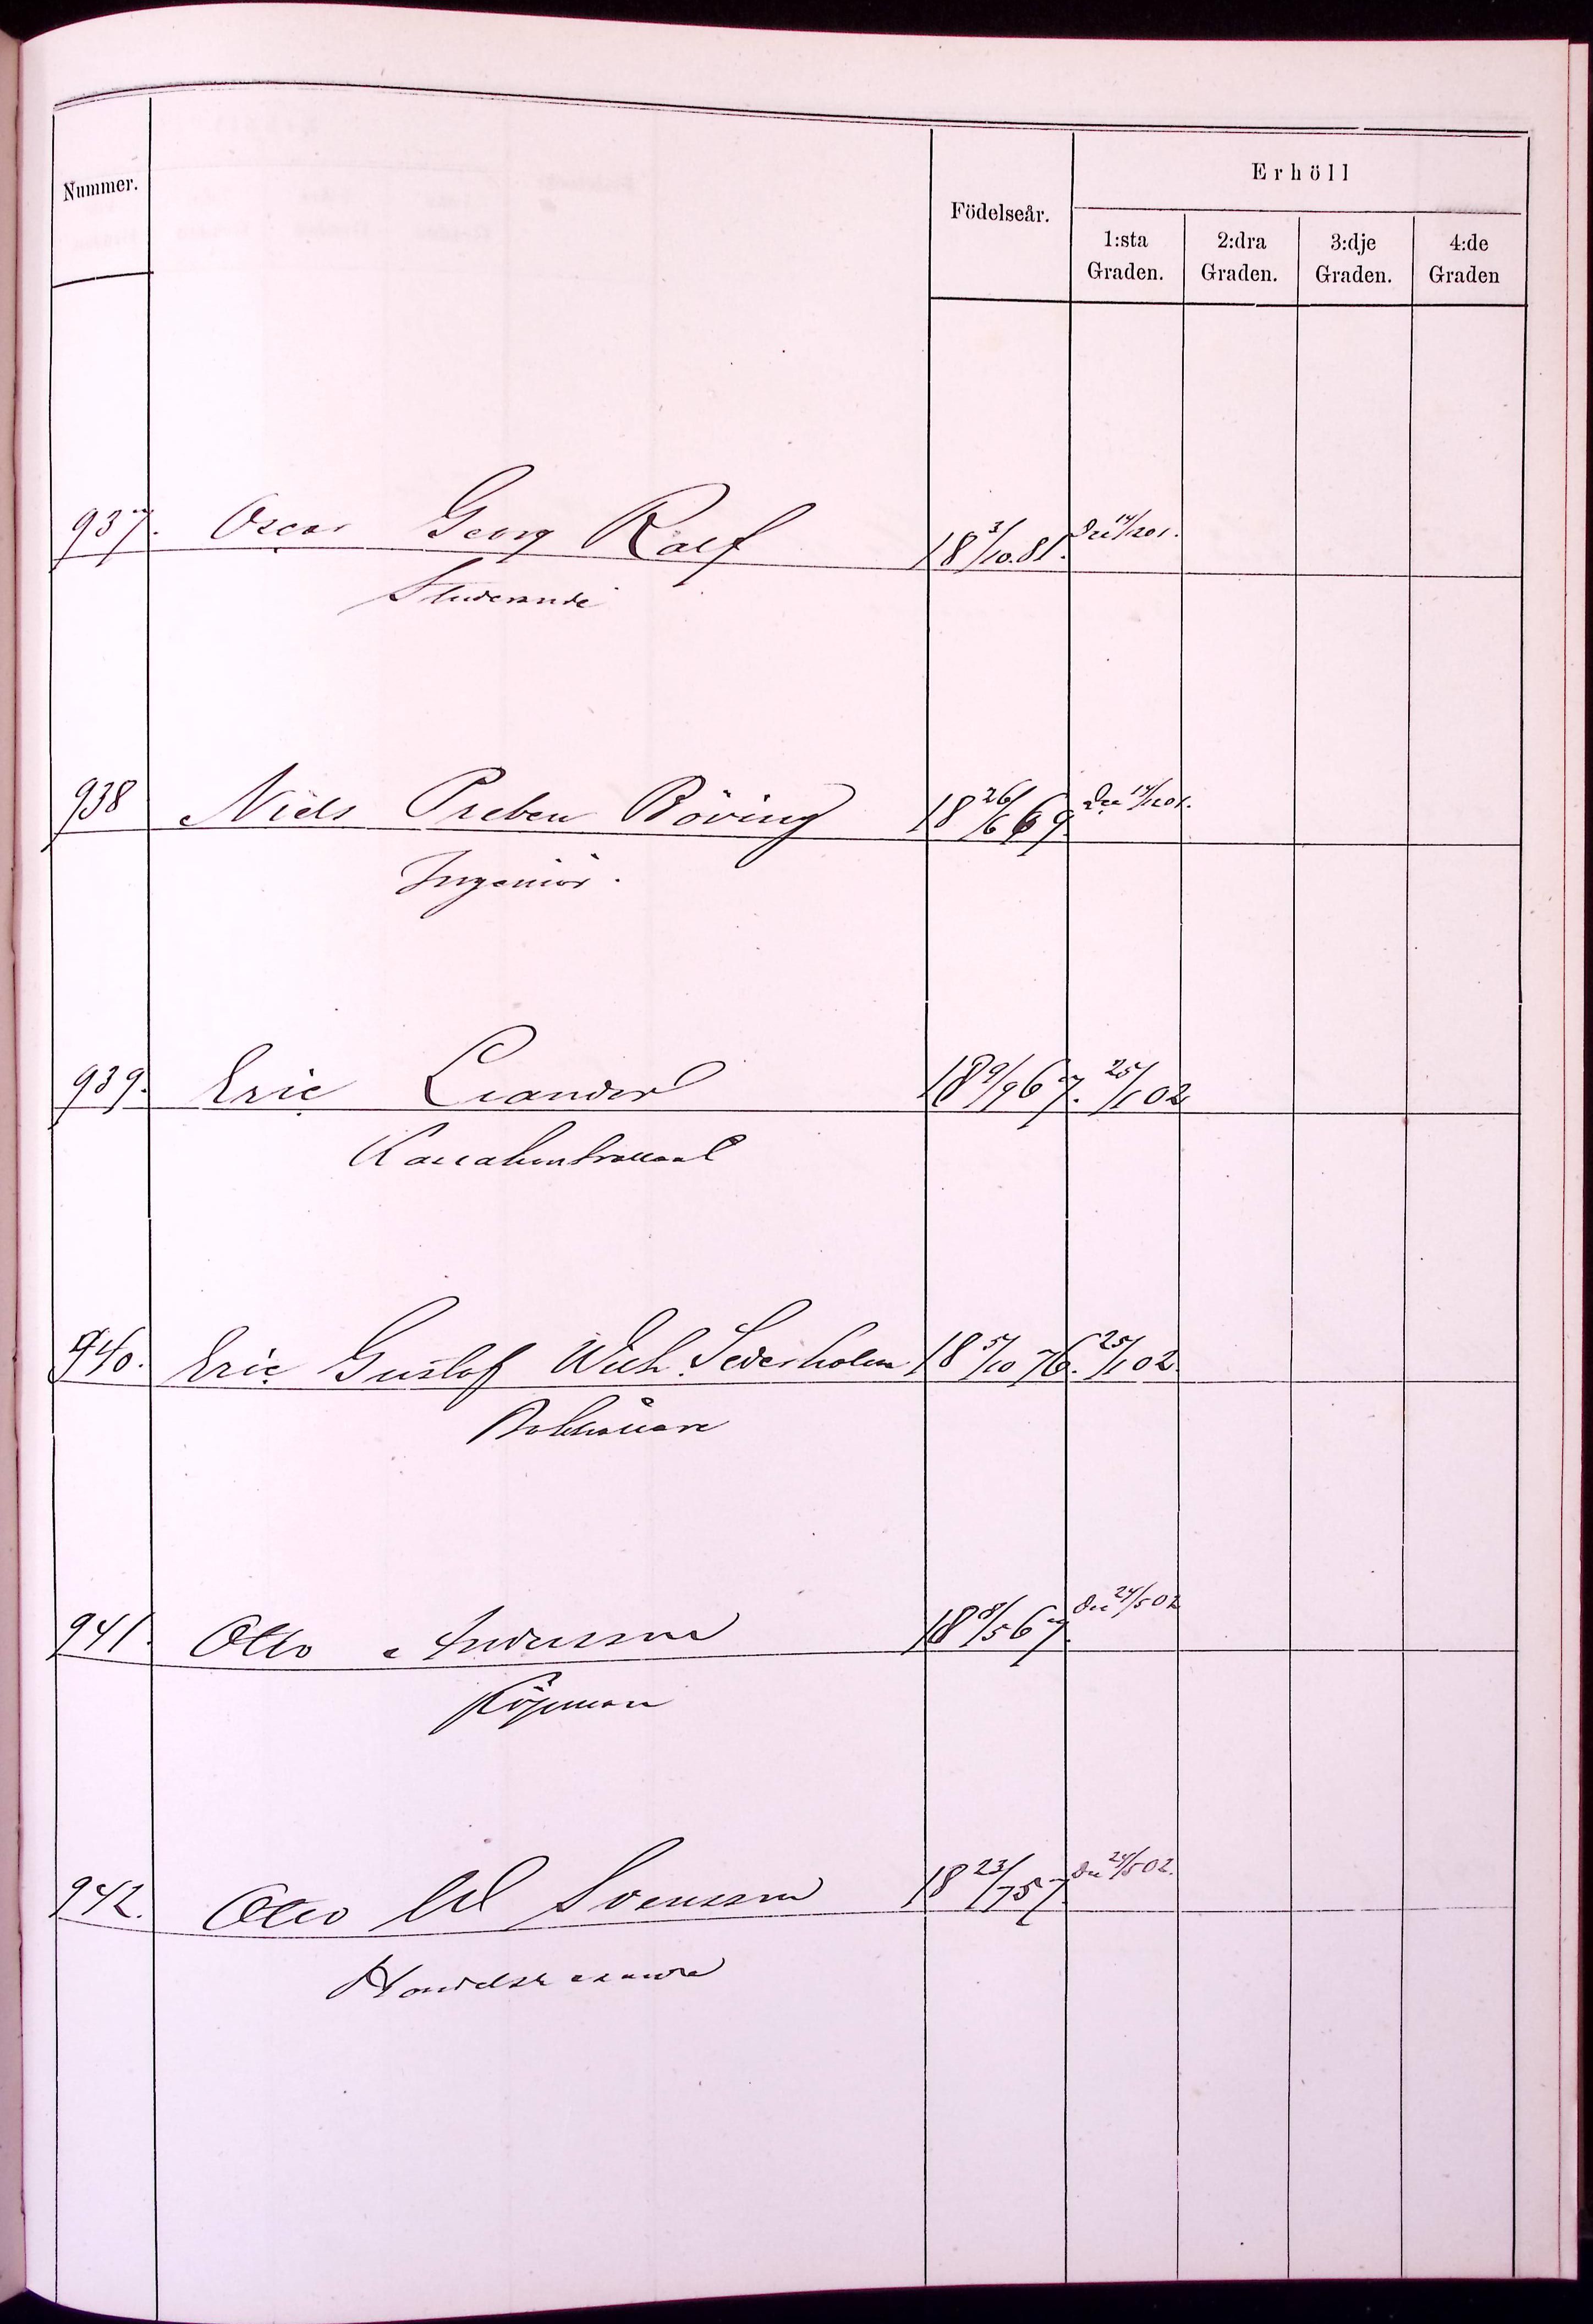 Nummer.
Födelseår.
Erhöll
1:sta Graden.
2:dra Graden.
3:dje Graden.
4:de Graden
937. Oscar Georg Ralf 18 3/10. 81. Den 14/12 01.
Studerande
938 Niels Preben Böving 18 26/6 69. Den 14/12 01.
Ingeniör.
939. Eric Leander 18 9/9 67. 25/1 02
940. Eric Gustaf Wilh. Sederholm 18 5/10 76. 25/1 02.
Bokhållare
941. Otto Andersson 18 8/5 67. Den 24/5 02
Köpman
942. Otto Svensson 18 23/7 57. Den 24/5 02.
Handelsresande